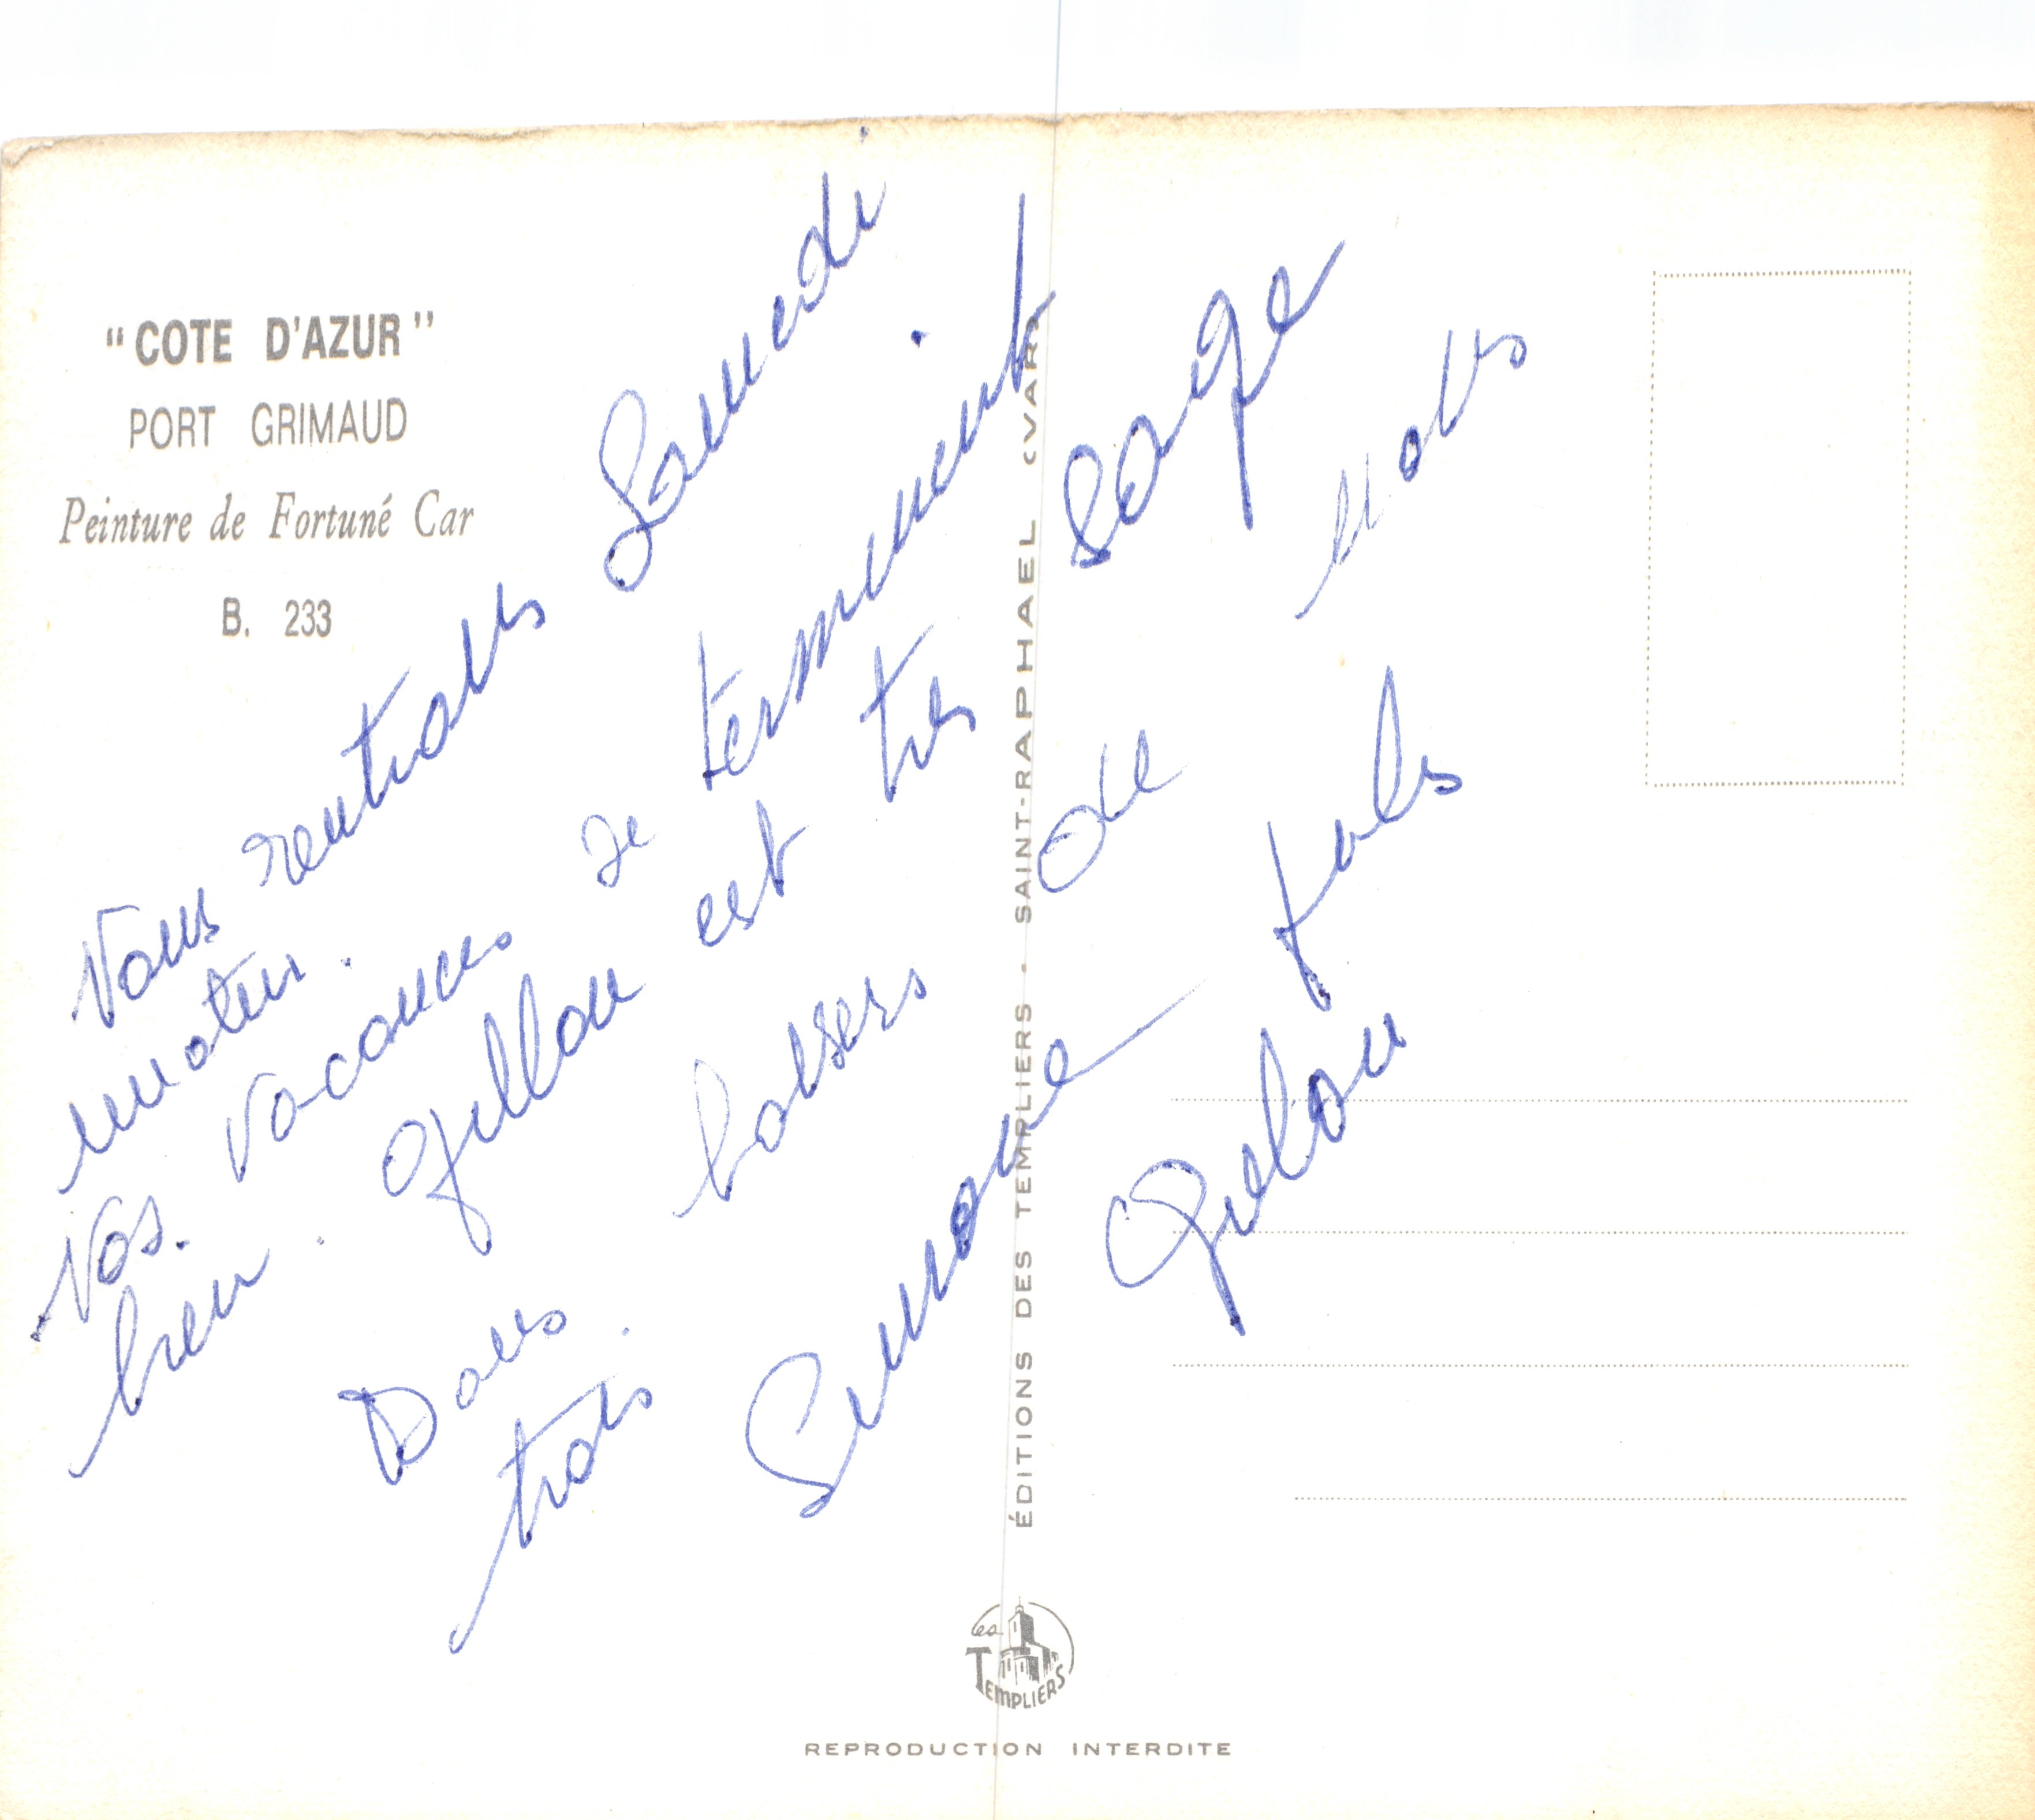 "COTE D'AZUR"
PORT GRIMAUD
Peinture de Fortuné Car
B. 233
Nous rentrons Samedi
matin.
Nos vacances se terminent
bien. Gillou est très sage
Bons baisers de nous
trois.
Simone
Gillou
ÉDITIONS DES TEMPLIERS - SAINT-RAPHAEL (VAR)
Les TEMPLIERS
REPRODUCTION INTERDITE